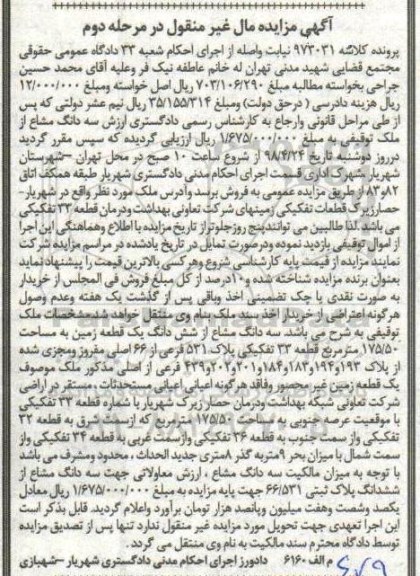 آگهی مزایده مال غیر منقول در مرحله دوم
پرونده کلاسه ۹۷۳۰۳۱ نیابت واصله از اجرای احکام شعبه ۳۳ دادگاه عمومی حقوقی
مجتمع قضایی شهید مدنی تهران له خانم عاطفه نیک فر وعلیه آقای محمد حسین
جراحی بخواسته مطالبه مبلغ ۷۰۳/۱۰۶/۲۹۰ ریال اصل خواسته ومبلغ ۱۲/۰۰۰/۰۰۰
ریال هزینه دادرسی ( درحق دولت) ومبلغ ۳۵/۱۵۵/۳۱۴ ریال نیم عشر دولتی که پس
از طی مراحل قانونی وارجاع به کارشناس رسمی دادگستری ارزش سه دانگ مشاع از
ملک توقیفی به مبلغ ۱/۶۷۵/۰۰۰/۰۰۰ ریال ارزیابی گردیده که سپس مقرر گردید
درروز دوشنبه تاریخ ۹۸/۴/۲۴ از شروع ساعت ۱۰ صبح در محل تهران –شهرستان
شهریار –شهرک اداری قسمت اجرای احکام مدنی دادگستری شهریار طبقه همکف اتاق
۸۲و۸۳ از طریق مزایده عمومی به فروش برسد وآدرس ملک مورد نظر واقع در شهریار-
حصارزیرک قطعات تفکیکی زمینهای شرکت تعاونی بهداشت ودرمان قطعه ۳۳ تفکیکی
می باشد.لذا طالبین می توانند پنج روز جلوتر از تاریخ مزایده با اطلاع وهماهنگی این اجرا
از اموال توقیفی بازدید نموده ودرصورت تمایل در تاریخ یادشده در مراسم مزایده شرکت
نمایند مزایده از قیمت پایه کارشناسی شروع وهر کس بالاترین قیمت را پیشنهاد نماید
بعنوان برنده مزایده شناخته شده و۱۰درصد از کل مبلغ فروش فی المجلس از خریدار
به صورت نقدی یا چک تضمینی اخذ وباقی پس از گذشت یک هفته وعدم وصول
هرگونه اعتراضی از خریدار اخذ سند ملک بنام وی منتقل خواهد شد.مشخصات ملک
توقیفی به شرح می باشد سه دانگ مشاع از شش دانگ یک قطعه زمین به مساحت
۱۷۵/۵۰ مترمربع قطعه ۳۳ تفکیکی پلاک ۵۳۱ فرعی از ۶۶ اصلی مفروز ومجزی شده
از پلاک ۱۹۳و۱۹۴و۱۸۳و۱۸۴و۲۰۱و۲۰۲و۴۳۹ فرعی از اصلی مذکور ملک موصوف
یک قطعه زمین غیر محصور وفاقد هرگونه اعیانی اعیانی مستحدثات ، مستقر در اراضی
شرکت تعاونی شبکه بهداشت ودرمان حصار زیرک شهریار با شماره قطعه ۳۳ تفکیکی
با موقعیت عرصه جنوبی به مساحت ۱۷۵/۵۰ مترمربع که ازسمت شرق به قطعه ۳۲
تفکیکی واز سمت جنوب به قطعه ۳۶ تفکیکی وازسمت غربی به قطعه ۳۴ تفکیکی واز
سمت شمال با میزان بحر ۹متربه گذر ۸متری جدید الحداث ، محدود ومشرف می باشد
با توجه به میزان مالکیت سه دانگ مشاع ، ارزش معاولاتی جهت سه دانگ مشاع از
ششدانگ پلاک ثبتی ۶۶/۵۳۱ جهت پایه مزایده به مبلغ ۱/۶۷۵/۰۰۰/۰۰۰ ریال معادل
یکصد وشصت وهفت میلیون وپانصد هزار تومان برآورد واعلام گردید. قابل بذکر است
این اجرا تعهدی جهت تحویل مورد مزایده غیر منقول ندارد تنها پس از تصدیق مزایده
توسط دادگاه محترم سند مالکیت به نام وی منتقل می گردد .
م الف ۶۱۶۰ دادورز اجرای احکام مدنی دادگستری شهریار –شهبازی